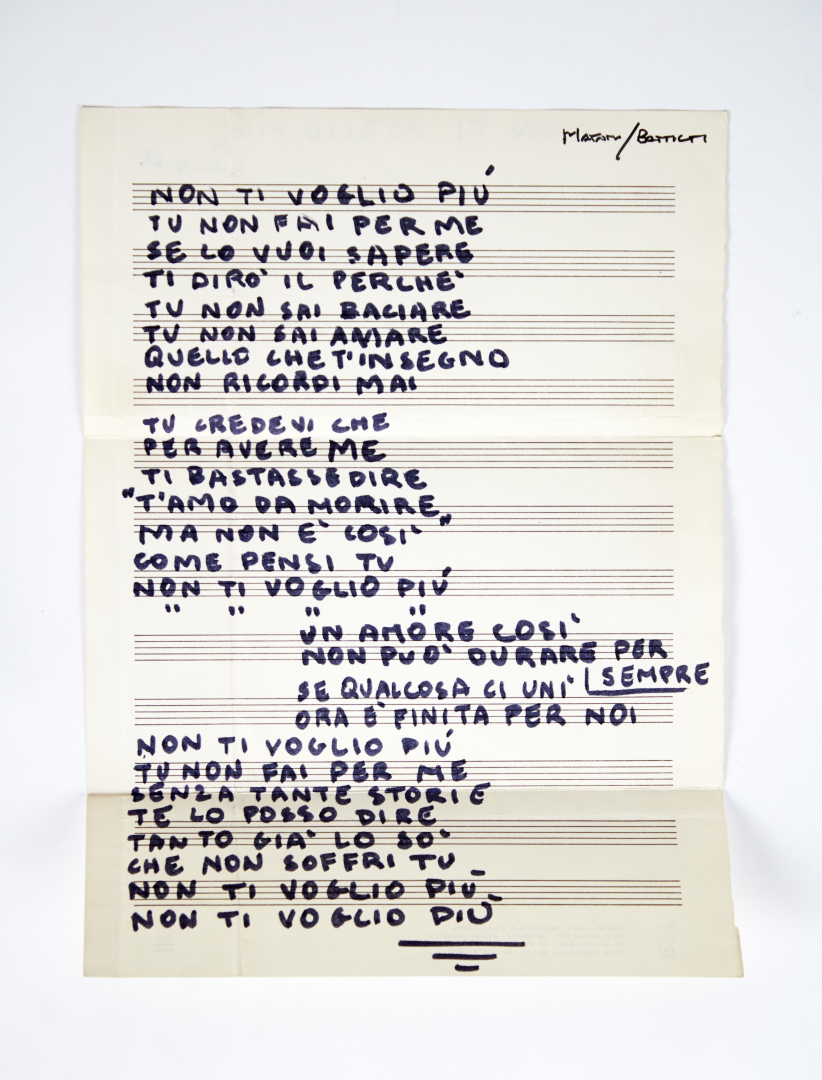 MATANO/BATTISTI
NON TI VOGLIO PIÚ
TU NON FAI PER ME
SE LO VUOI SAPERE
TI DIRO' IL PERCHE'
TU NON SAI BACIARE
TU NON SAI AMARE
QUELLO CHE T'INSEGNO
NON RICORDI MAI
TU CREDEVI CHE
PER AVERE ME
TI BASTASSE DIRE
"T'AMO DA MORIRE
MA NON E' COSI'"
COME PENSI TU
NON TI VOGLIO PIÚ
" " " "
UN AMORE COSI'
NON PUO' DURARE PER
SEMPRE
SE QUALCOSA CI UNI'
ORA E' FINITA PER NOI
NON TI VOGLIO PIÚ
TU NON FAI PER ME
SENZA TANTE STORIE
TE LO POSSO DIRE
TANTO GIA' LO SO'
CHE NON SOFFRI TU
NON TI VOGLIO PIÙ
NON TI VOGLIO PIÙ